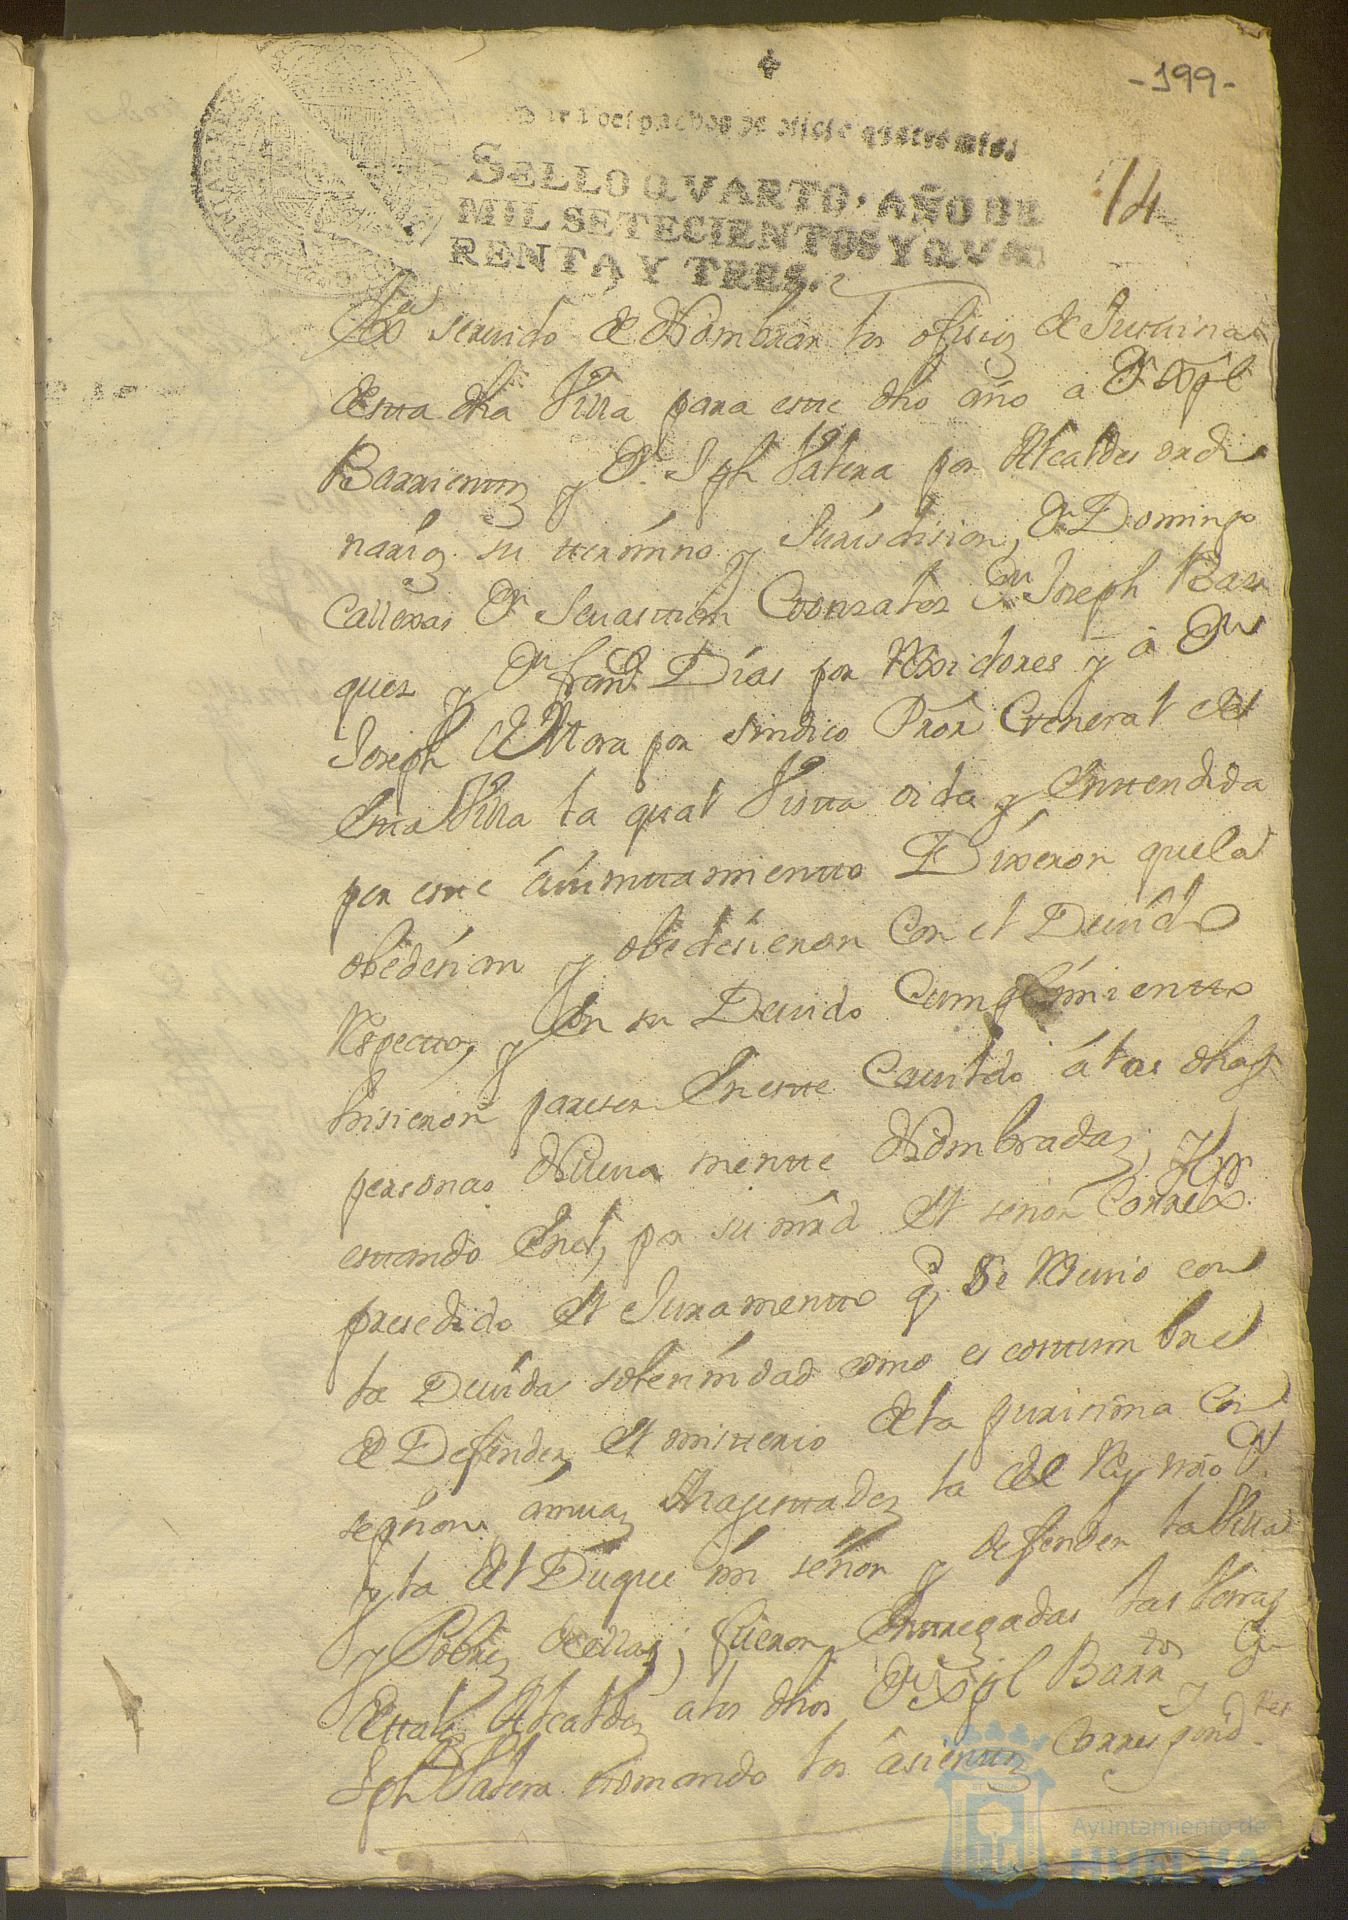 -199-
Para despachos de oficio quatro mrs.
SELLO QVARTO. AÑO DE
MIL SETECIENTOS Y QVA
RENTA Y TRES.
14
seruido de Nombrar los ofisios de Justisia
desta dha Villa para este dho año a Dn Xptl
Barrientos y Dn Jph Valera por Alcaldes ordi
narios su termino y Jurisdision, Dn Domingo
Callexas Dn Seuastian Gonzales Dn Joseph Bas
ques y Dn franco Dias por Rexidores y a Dn
Joseph de Mora por sindico Pror General de
esta Villa la qual Vista oida y Enttendida
por este aiuntamientto Dixeron que la
obedesian y obedesieron Con el Deuido
Respectto, y En su Deuido Cumplimientto
hisieron pareser En este Cauildo á las dhas
personas Nueua mente Nombradas, Y
estando En el, por su mrd el señor Correxor
presedido el Juramentto q Se Reuio con
la Deuida solemnidad como es costtumbre
de Defender el mistterio de la purisima Con
sepsion, amuas Magestades la del Rey nro Sr
y la del Duque mi señor y defender la Villa
y Pobres della; fueron Enttregadas las Varas
de tales Alcaldes a los dhos Dn Xptl Barrtos y Dn
Jph Valera tomando los asienttos Correspondtes
Ayuntamiento de
HUELVA